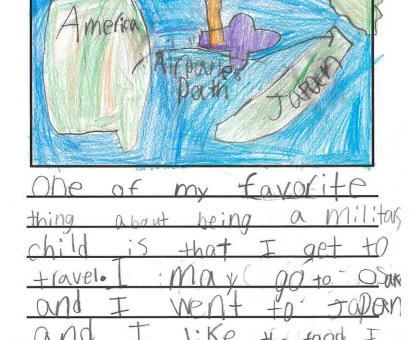 America
Airplane
Path
Japan
One of my favorite
thing about being a military
child is that I get to
travel. I may go to
and I went to Japan
and I like the food I